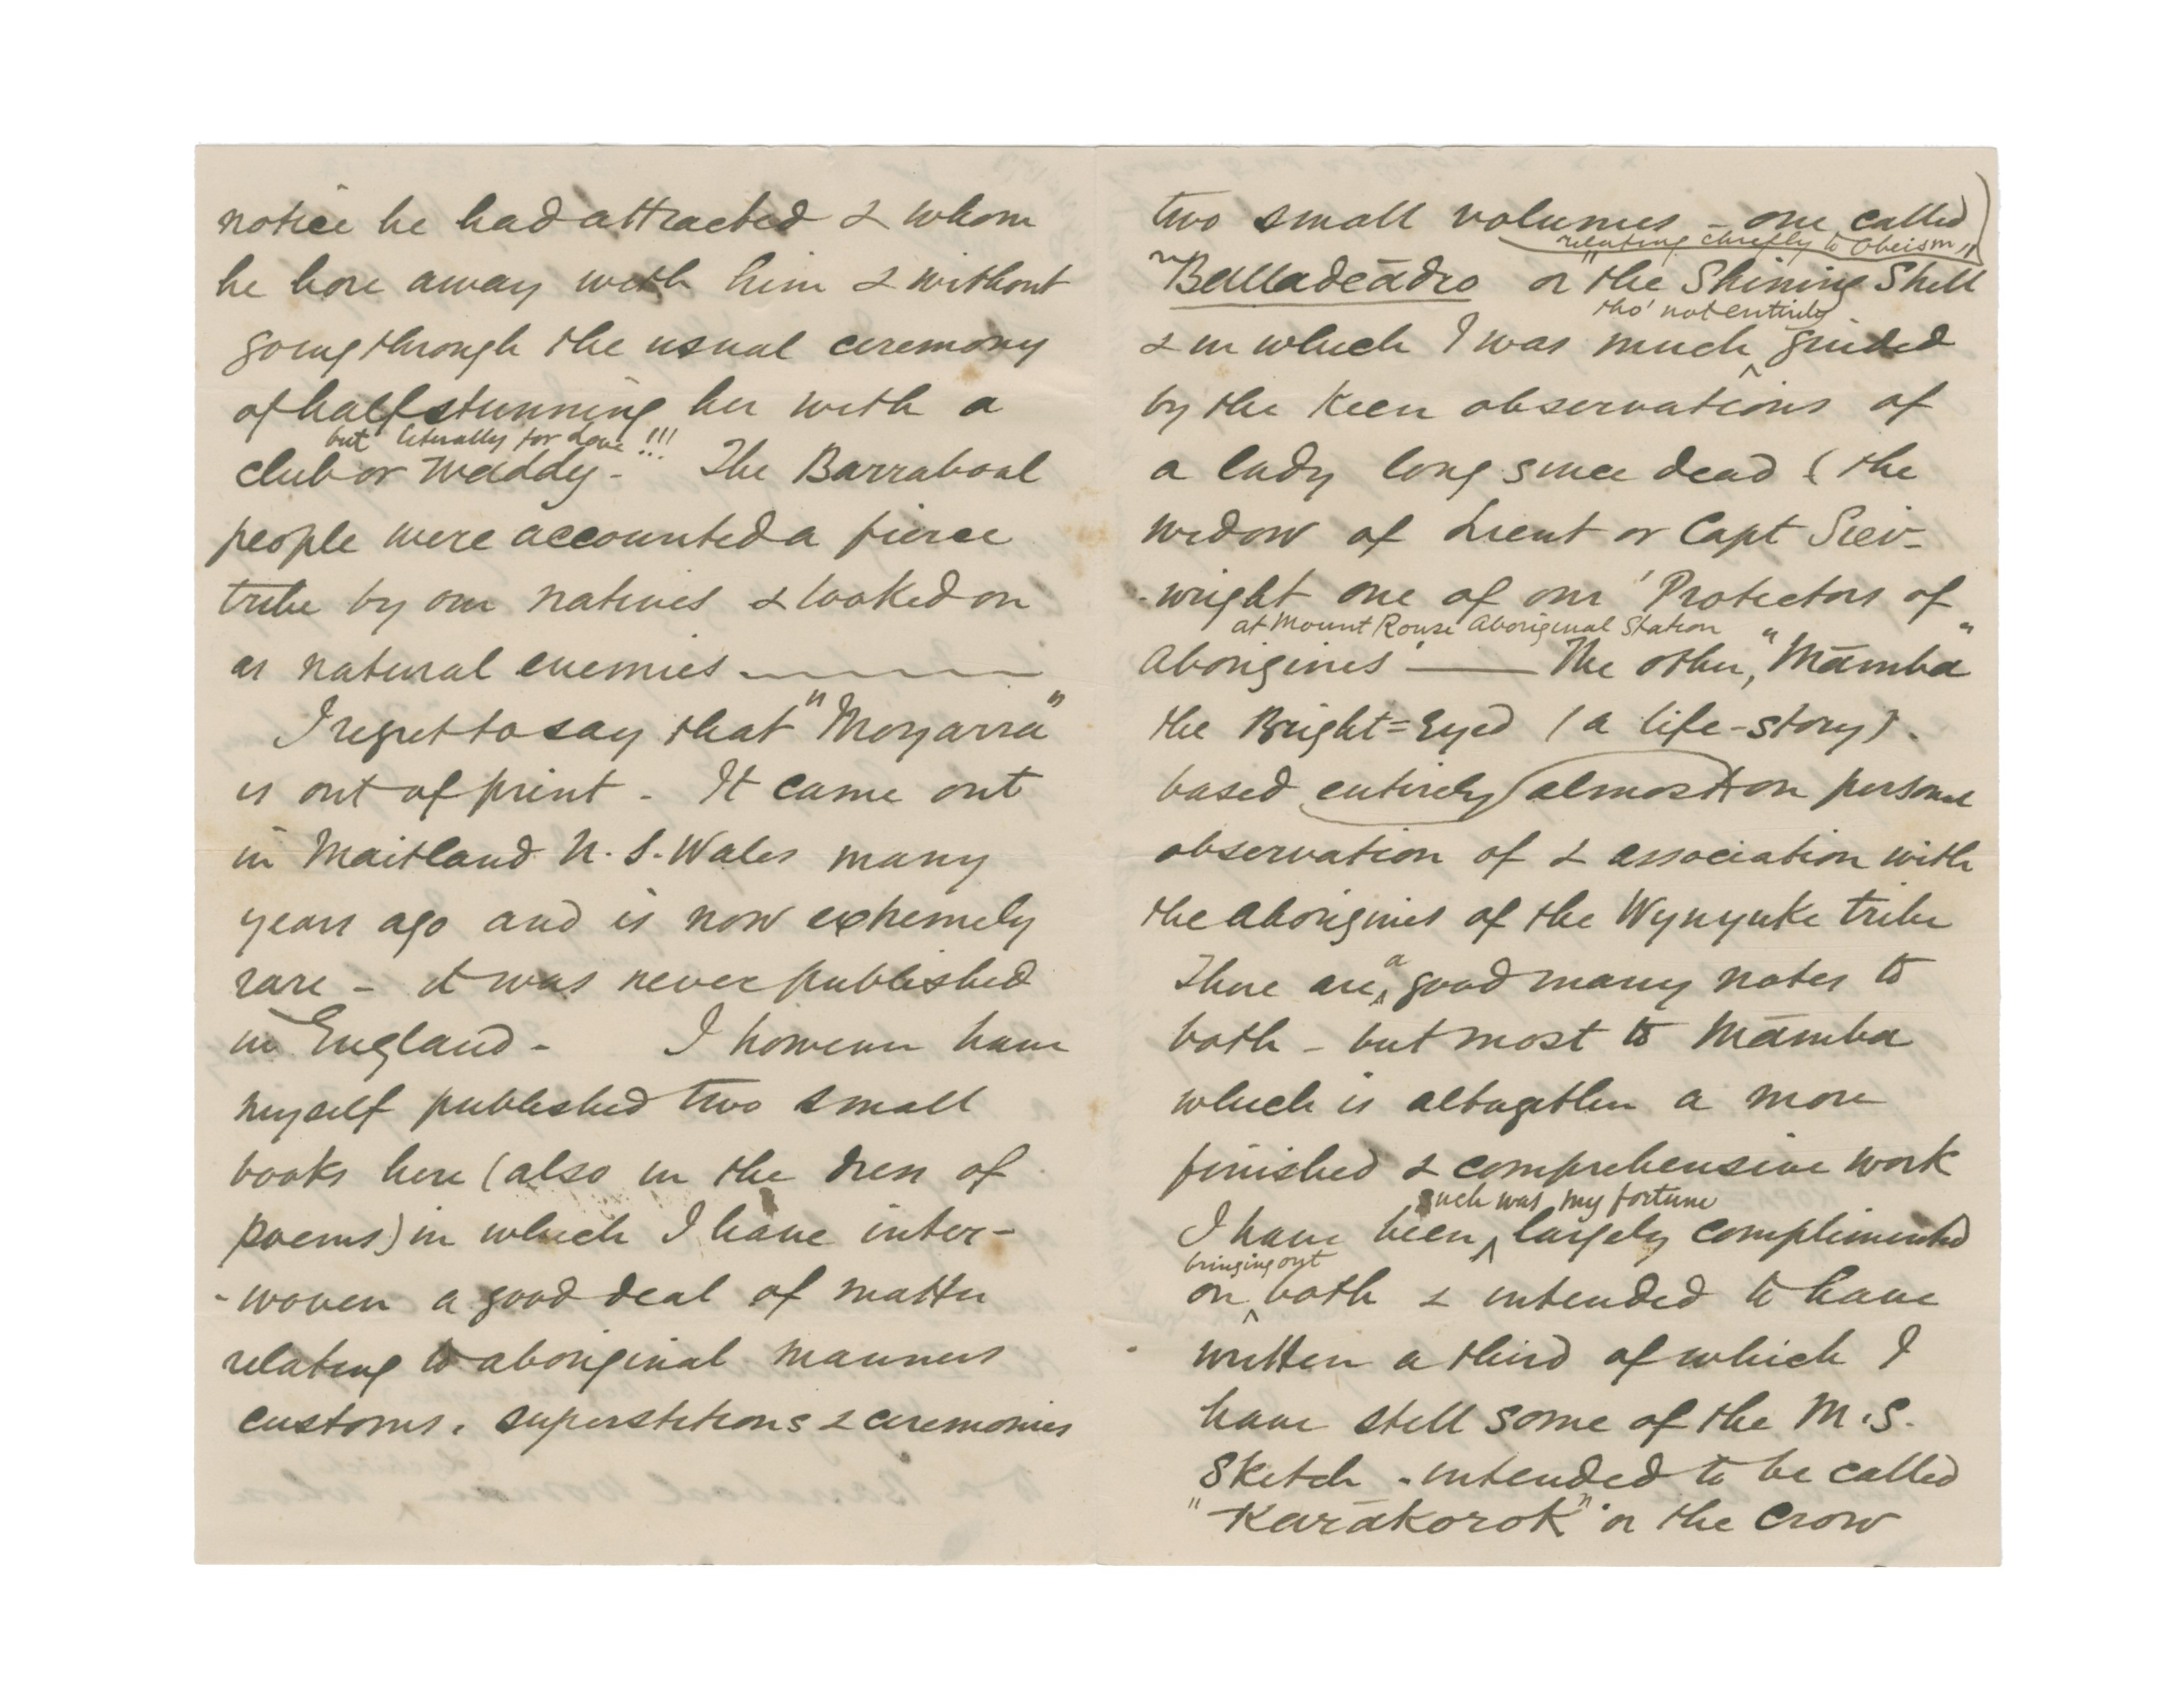 notice he had attracted & whom
he bore away with him & without
going through the usual ceremony
of half stunning her with a
but literally for love!!!
club or Waddy - The Barrabool
people were accounted a fierce
tribe by our natives & looked on
as natural enemies
I regret to say that "Moyarra"
is out of print - It came out
in Maitland N. S. Wales many
years ago and is now extremely
rare - it was never published
in England - I however have
myself published two small
books here (also in the dress of
poems) in which I have inter-
-woven a good deal of matter
relating to aboriginal manners
customs, superstitions & ceremonies
two small volumes - one called
relating chiefly to Obeism
"Balladeādro or "the Shining Shell"
tho' not entirely
& in which I was much guided
by the keen observations of
a lady long since dead (the
widow of Lieut or Capt Siev-
-wright one of our 'Protectors of
at Mount Rouse Aboriginal Station
Aborigines' — The other, "Māmba"
the Bright=Eyed (a life-story).
based entirely almost on personal
observation of & association with
the aborigines of the Wynyuke tribe
a
There are good many notes to
both - but most to Māmba
which is altogether a more
finished & comprehensive work
such was my fortune
I have been largely complimented
bringing out
on both & intended to have
written a third of which I
have still some of the M.S.
Sketch - intended to be called
"Karākorok" or the Crow